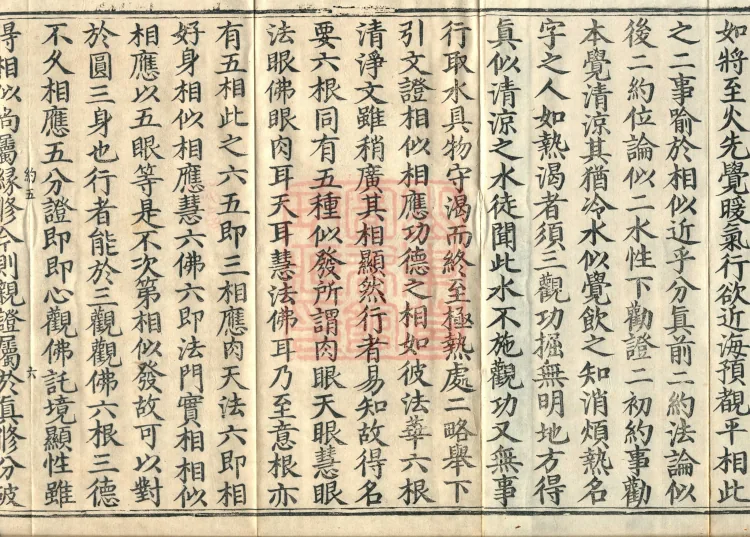 如將至火先覺暖氣行欲近海預覩平相此
之二事喻於相似近乎分眞前二約法論似
後二約位論似二水性下勸證二初約事勸
本覺清涼其猶冷水似覺飲之知消煩熱名
字之人如熱渴者須三觀功掘無明地方得
眞似清涼之水徒聞此水不施觀功又無事
行取水具物守渴而終至極熱處二略舉下
引文證相似相應功德之相如彼法華六根
清淨文雖稍廣其相顯然行者易知故得名
要六根同有五種似發所謂肉眼天眼慧眼
法眼佛眼肉耳天耳慧法佛耳乃至意根亦
有五相此之六五即三相應肉天法六即相
好身相似相應慧六佛六即法門實相相似
相應以五眼等是不次第相似發故可以對
於圓三身也行者能於三觀觀佛六根三德
不久相應五分證即即心觀佛託境顯性雖
約五
六
得相似尚屬緣修今則親證屬於眞修分破